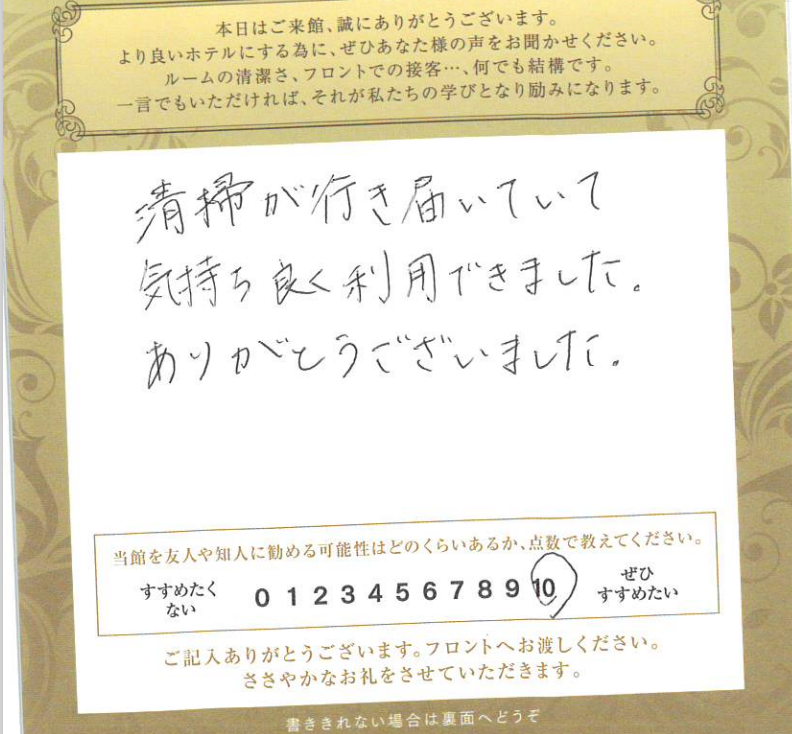 本日はご来館、誠にありがとうございます。
より良いホテルにする為に、ぜひあなた様の声をお聞かせください。
ルームの清潔さ、フロントでの接客…、何でも結構です。
一言でもいただければ、それが私たちの学びとなり励みになります。
清掃が行き届いていて
気持ち良く利用できました。
ありがとうございました。
当館を友人や知人に勧める可能性はどのくらいあるか、点数で教えてください。
すすめたく
ない
0 1 2 3 4 5 6 7 8 9 10
ぜひ
すすめたい
ご記入ありがとうございます。フロントへお渡しください。
ささやかなお礼をさせていただきます。
書ききれない場合は裏面へどうぞ